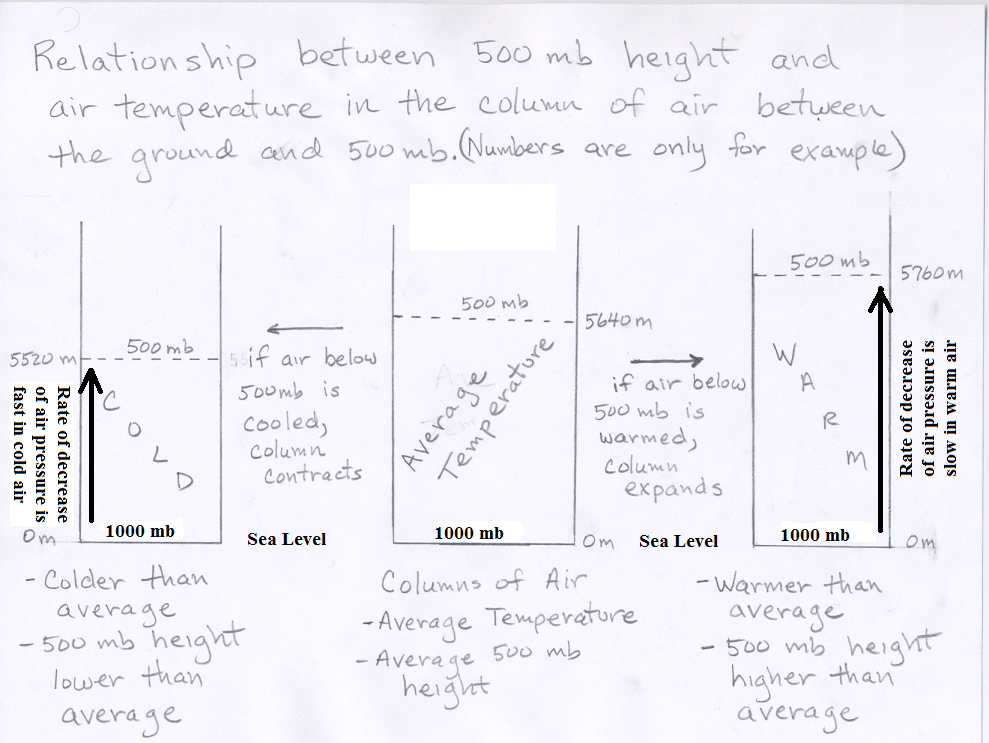 Relationship between 500 mb height and
air temperature in the column of air between
the ground and 500 mb. (Numbers are only for example)
5520 m
500 mb
C
O
L
D
Rate of decrease
of air pressure is
fast in cold air
1000 mb
0m
Sea Level
- Colder than
average
- 500 mb height
lower than
average
if air below
500mb is
cooled,
column
contracts
500 mb
5640 m
Average
Temperature
1000 mb
0m
Sea Level
Columns of Air
- Average Temperature
- Average 500 mb
height
if air below
500 mb is
warmed,
column
expands
500 mb
5760 m
W
A
R
M
Rate of decrease
of air pressure is
slow in warm air
1000 mb
0m
- Warmer than
average
- 500 mb height
higher than
average